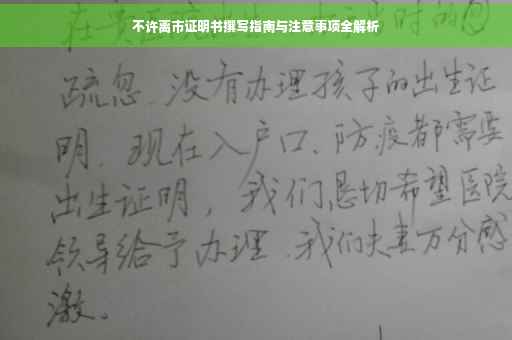 不许离市证明书撰写指南与注意事项全解析
疏忽、没有办理孩子的出生证
明、现在入户口、防疫都需要
出生证明，我们恳切希望医院
领导给予办理、我们夫妻万分感
激。